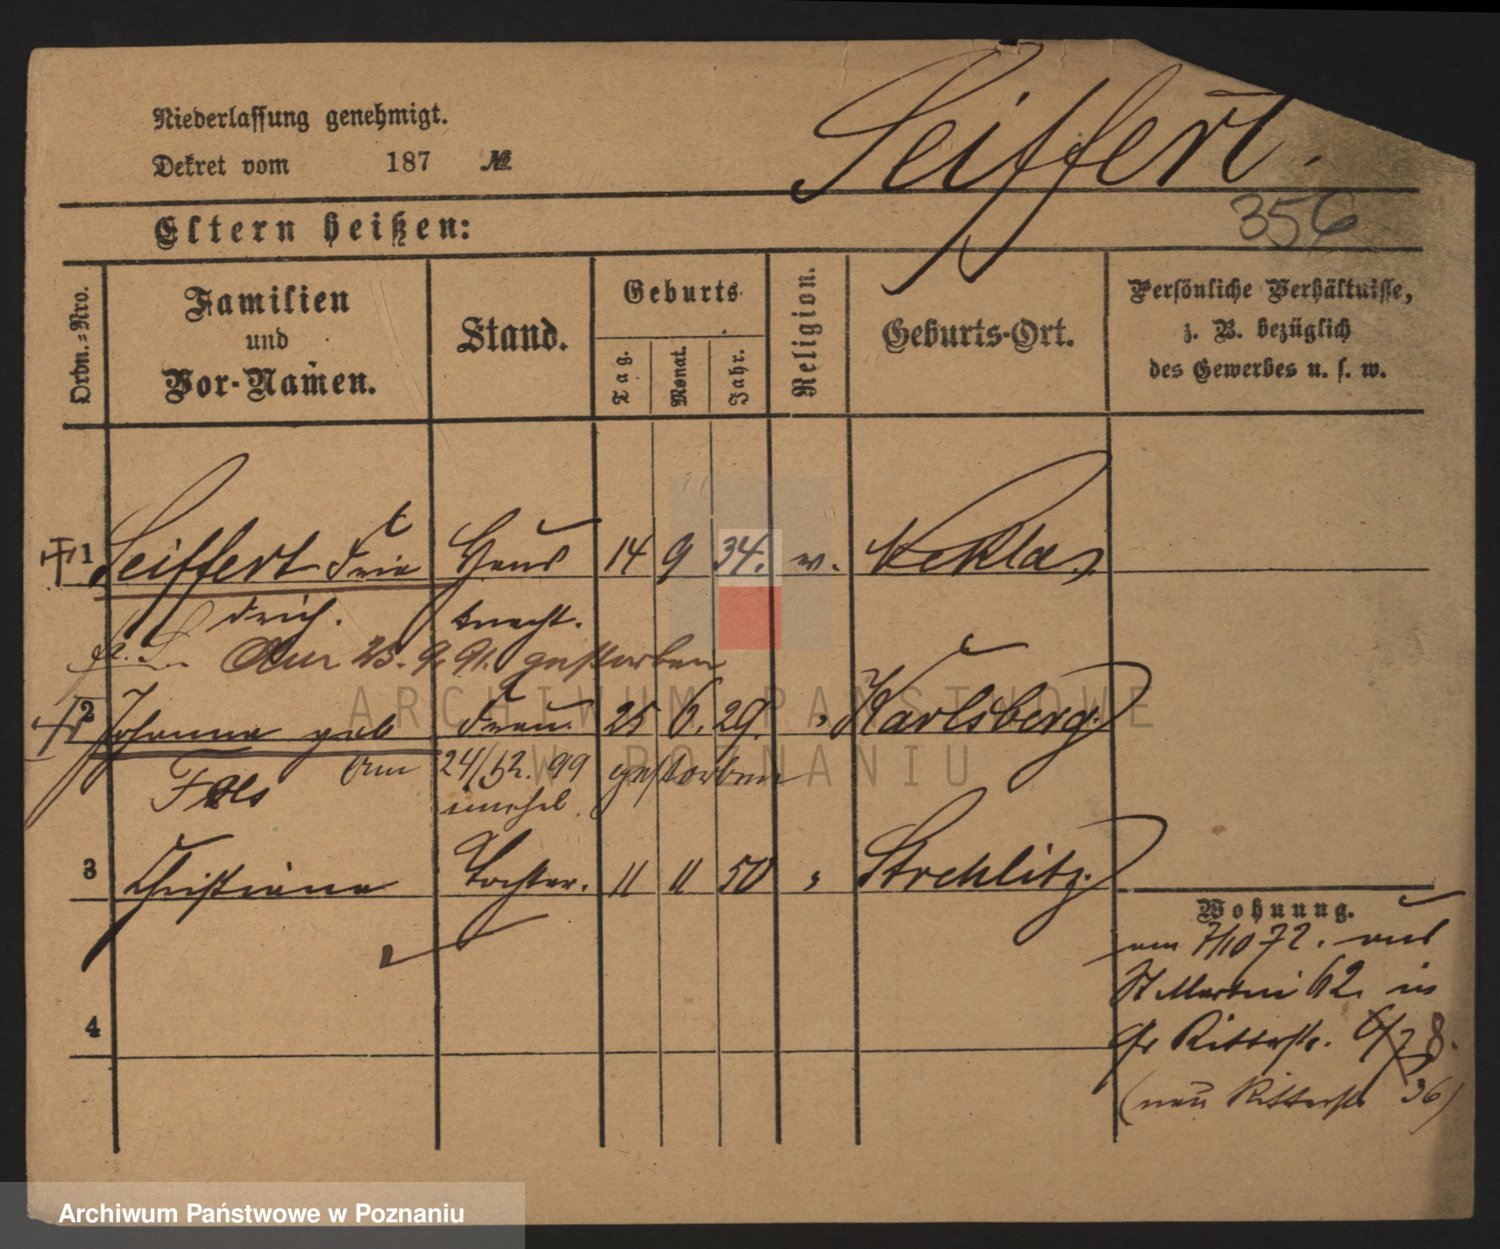 Niederlassung genehmigt.
Seiffert.
Dekret vom 187 №
356
Eltern heißen:
Ordn.-Nro.
Familien
und
Vor-Namen.
Stand.
Geburts-
Tag.
Monat.
Jahr.
Religion.
Geburts-Ort.
Persönliche Verhältnisse,
z. B. bezüglich
des Gewerbes u. s. w.
1 Seiffert Frie Haus 14 9 34. ev. Nekla
drich. knecht.
Am 23. 9. 91. gestorben
2 Johanna geb Frau. 25 6. 29. " Karlsberg.
Am 24/12. 99 gestorben
3 Christiane Tochter. 11 11 50 " Strehlitz.
Wohnung.
am 7/10 72. aus
St Martin 62. in
gr Ritterstr. 6/7 8.
(neu Ritterstr 36)
4
ARCHIWUM PAŃSTWOWE
W POZNANIU
Archiwum Państwowe w Poznaniu